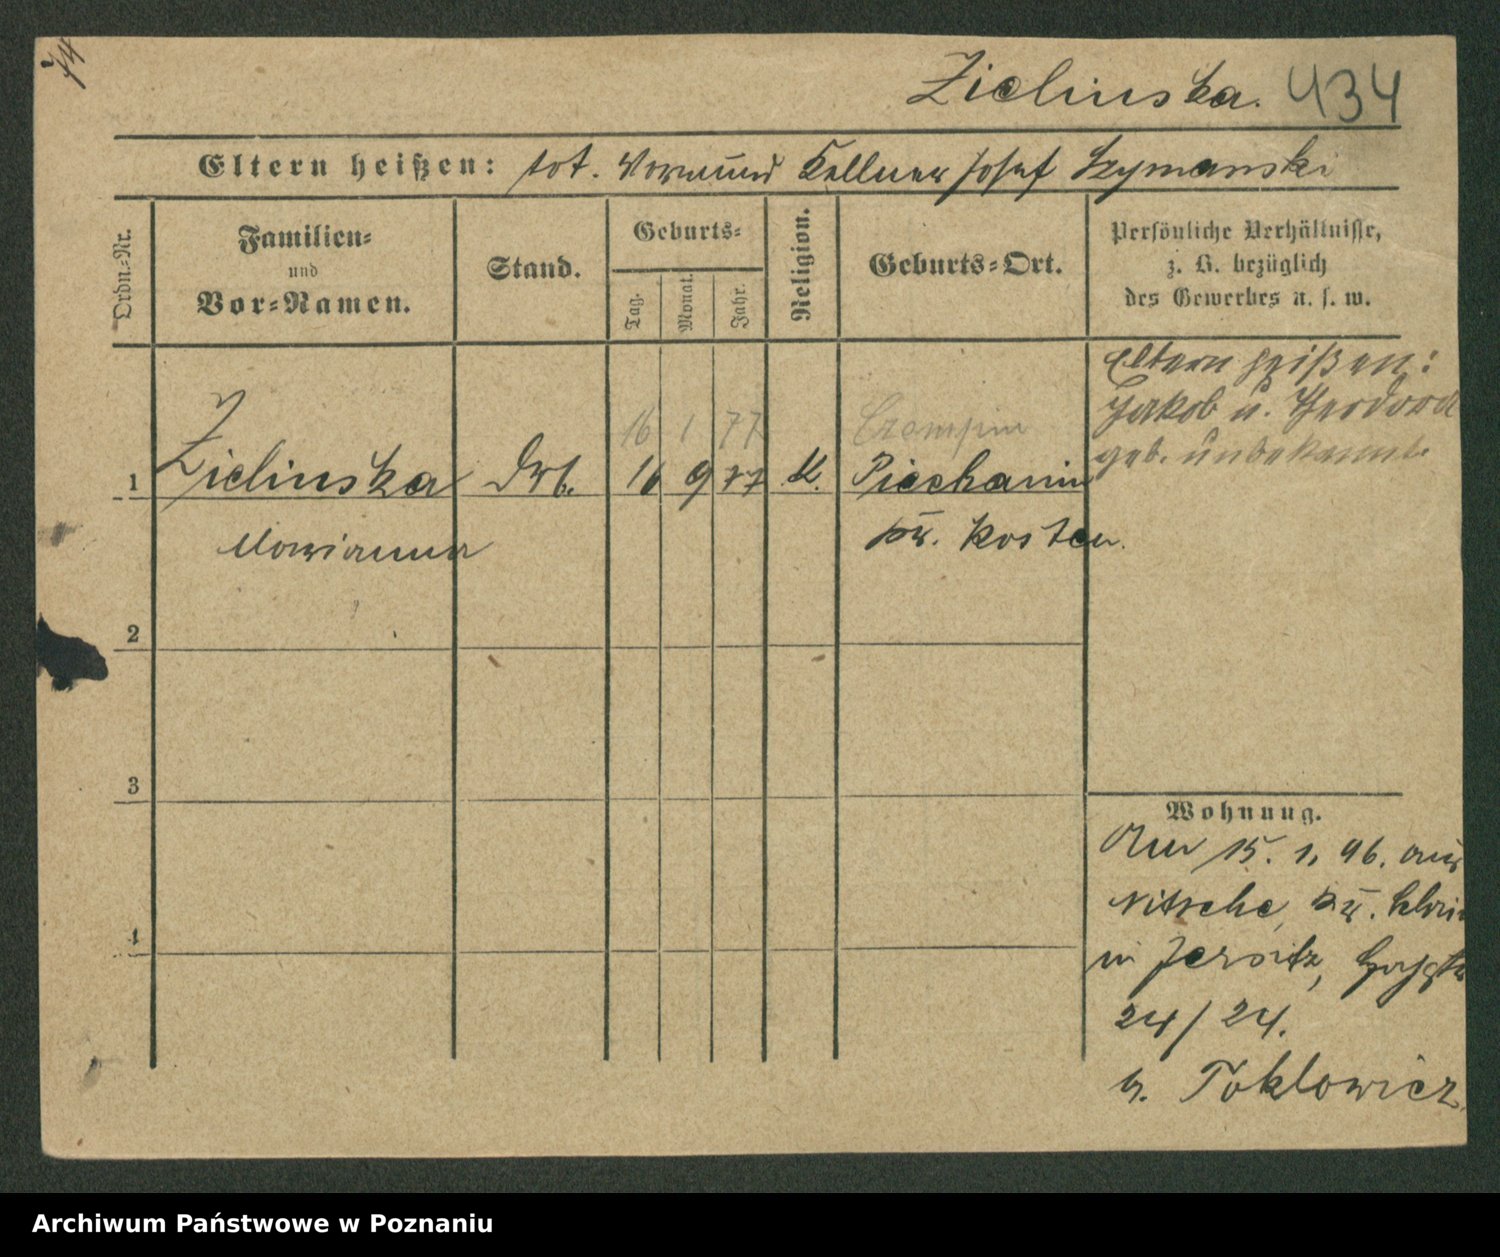 Zielinska. 434
Eltern heißen: tot. Vormund Kellner Josef Szymanski
Ordn.-Nr.
Familien-
und
Vor-Namen.
Stand.
Geburts-
Tag.
Monat.
Jahr.
Religion.
Geburts-Ort.
Persönliche Verhältnisse,
z. B. bezüglich
des Gewerbes u. s. w.
Eltern heißen:
Jakob u. Theodora
geb. unbekannt.
16 1 77 Czempin
1 Zielinska Arb. 16 9 77 K. Piechanin
Marianna Kr. Kosten.
2
3
4
Wohnung.
Am 15. 1. 96. aus
Nitsche, Kr.
in Jersitz,
24/24.
b. Toklowicz
Archiwum Państwowe w Poznaniu